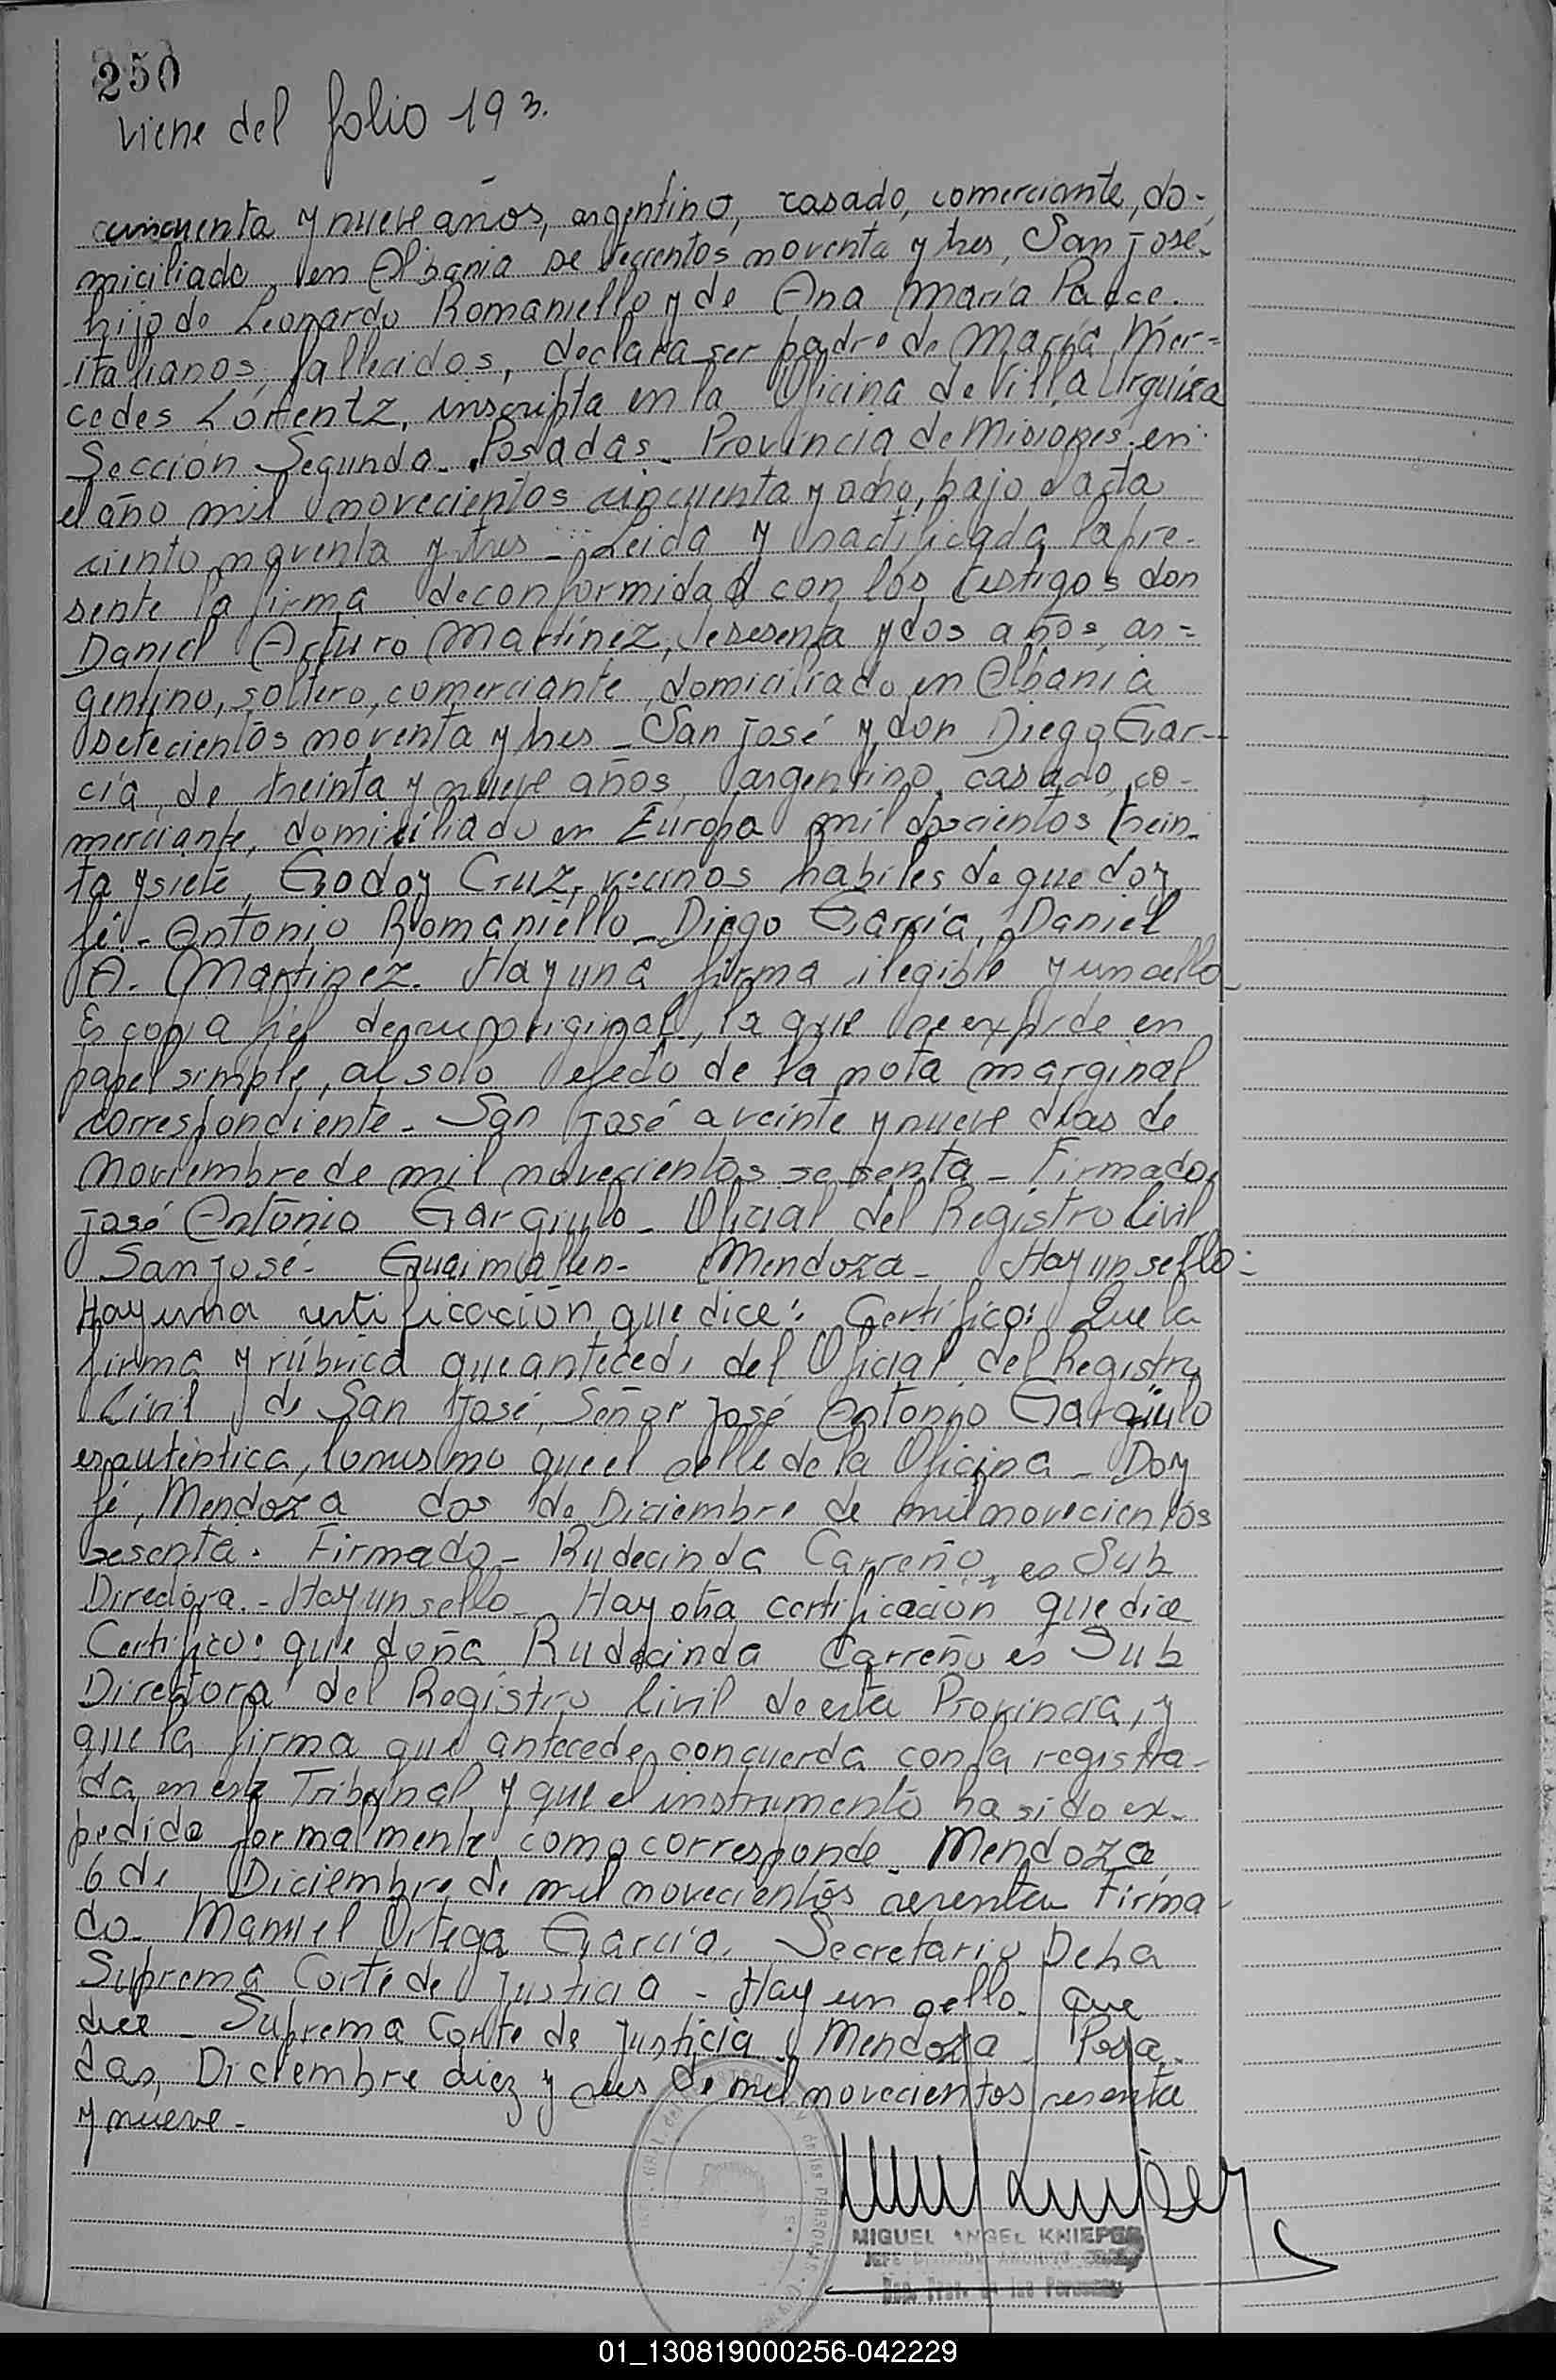 250
Viene del folio 193.
cuncuenta y nueve años, argentino, casado, comerciante, do-
miciliado en Albania setecientos noventa y tres, San José-
hijo de Leonardo Romaniello y de Ana María Pacce.
italianos, fallecidos, declara ser padre de María Mer=
cedes Lórentz, inscripta en la Oficina de Villa Urquiza
Sección Segunda. Posadas. Provincia de Misiones, en
el año mil novecientos cincuenta y ocho, bajo el acta
ciento noventa y tres - Leída y ractificada la pre-
sente la firma de conformidad con los testigos don
Daniel Arturo Martínez, sesenta y dos años, ar=
gentino, soltero, comerciante, domiciliado en Albania
setecientos noventa y tres - San José y don Diego Gar-
cía, de treinta y nueve años, argentino, casado, co-
merciante, domiciliado en Europa mil doscientos trein-
ta y siete, Godoy Cruz, vecinos habiles de que doy
fé. - Antonio Romaniello - Diego García, Daniel
A. Martinez. Hay una firma ilegible y un sello
Es copia fiel de su original, la que se expide en
papel simple, al solo efecto de la nota marginal
correspondiente - San José a veinte y nueve días de
Noviembre de mil novecientos sesenta - Firmado,
José Antonio Gargiulo - Oficial del Registro Civil
San José - Guaimallen - Mendoza - Hay un sello -
Hay una certificación que dice: Certifico: Que la
firma y rúbrica que antecede, del Oficial del Registro
Civil de San José, Señor José Antonio Gargiulo
es auténtica, lo mismo que el sello de la Oficina - Doy
fé, Mendoza dos de Diciembre de mil novecientos
sesenta. Firmado - Rudecinda Carreño, es Sub
Directora. - Hay un sello - Hay otra certificación que dice
Certifico: que doña Rudecinda Carreño es Sub
Directora del Registro Civil de esta Provincia, y
que la firma que antecede, concuerda con la registra-
da en este Tribunal, y que el instrumento ha sido ex-
pedido formalmente como corresponde. Mendoza
6 de Diciembre de mil novecientos sesenta Firma-
do. Manuel Ortega García. Secretario De ha
Suprema Corte de Justicia - Hay un sello. que
dice - Suprema Corte de Justicia Mendoza. Posa-
das, Diciembre diez y seis de mil novecientos sesenta
y nueve -
MIGUEL ANGEL KNIEPER
01_130819000256-042229